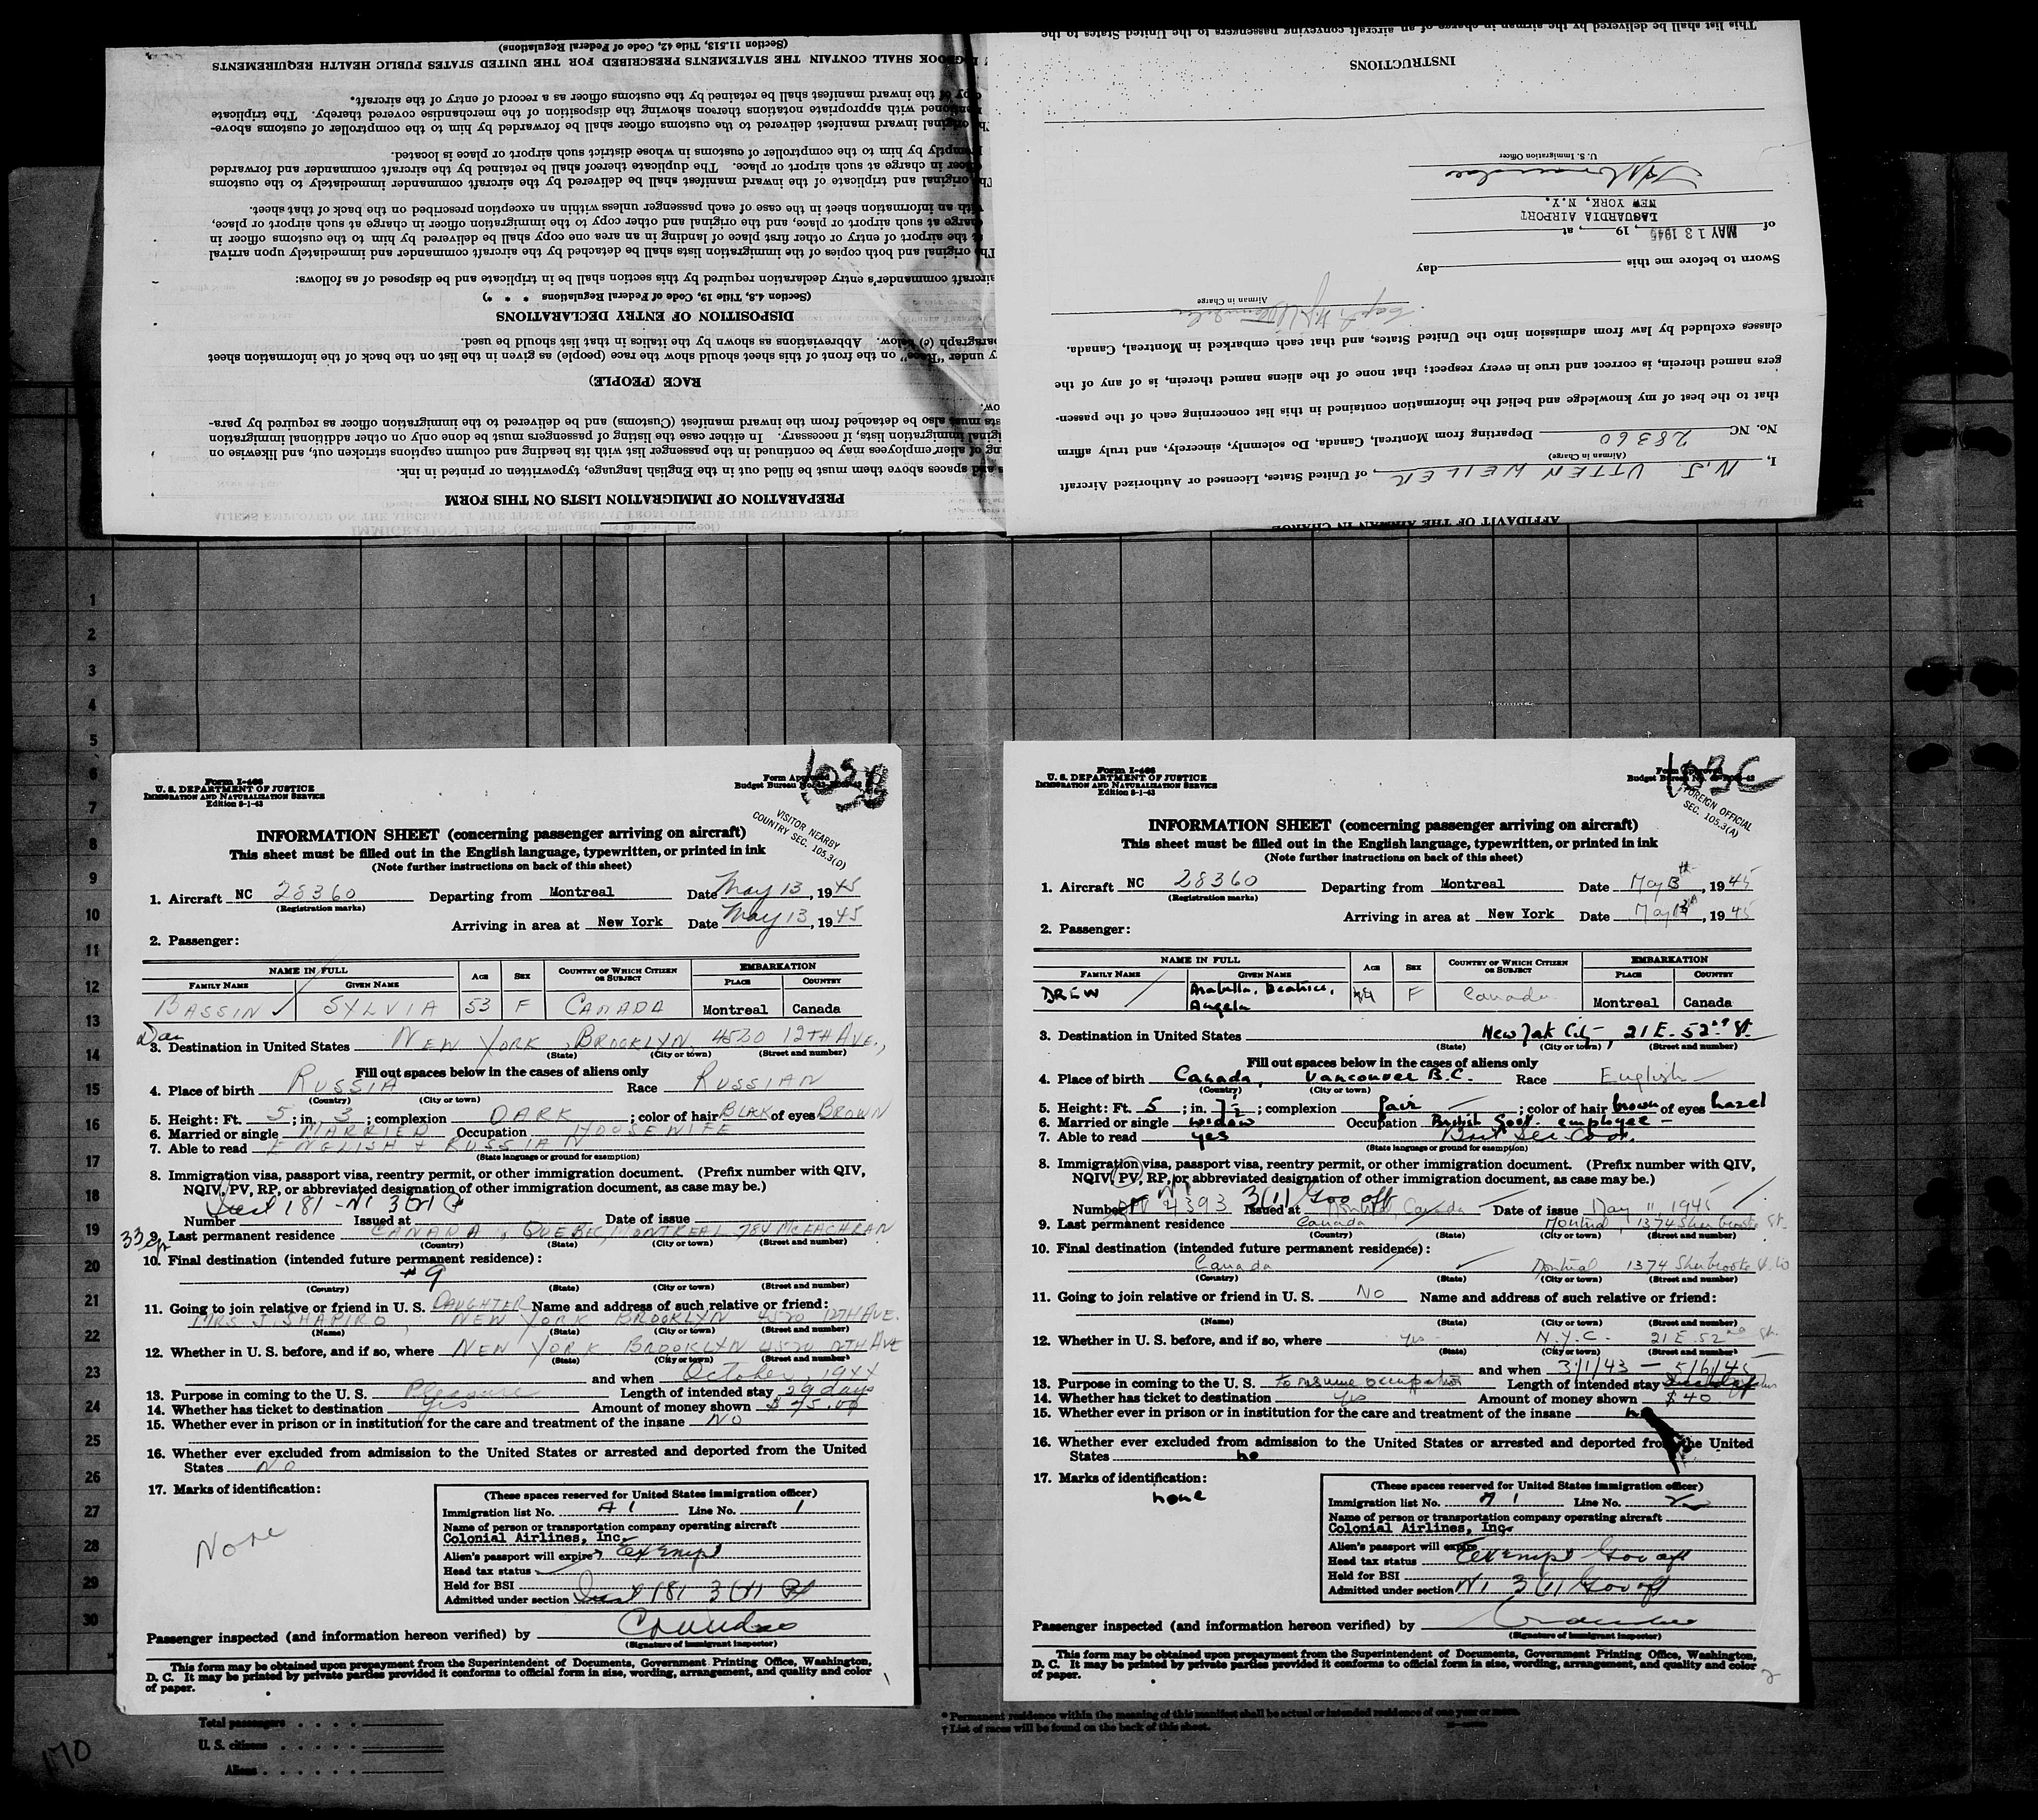 (Section 11.513, Title 42, Code of Federal Regulations)
LOGBOOK SHALL CONTAIN THE STATEMENTS PRESCRIBED FOR THE UNITED STATES PUBLIC HEALTH REQUIREMENTS
copy of the inward manifest shall be retained by the customs officer as a record of entry of the aircraft.
mentioned with appropriate notations thereon showing the disposition of the merchandise covered thereby. The triplicate
The original inward manifest delivered to the customs officer shall be forwarded by him to the comptroller of customs above-
promptly by him to the comptroller of customs in whose district such airport or place is located.
officer in charge at such airport or place. The duplicate thereof shall be retained by the aircraft commander and forwarded
The original and triplicate of the inward manifest shall be delivered by the aircraft commander immediately to the customs
with an information sheet in the case of each passenger unless within an exception prescribed on the back of that sheet.
charge at such airport or place, and the original and other copy to the immigration officer in charge at such airport or place,
at the airport of entry or other first place of landing in an area one copy shall be delivered by him to the customs officer in
The original and both copies of the immigration lists shall be detached by the aircraft commander and immediately upon arrival
aircraft commander's entry declaration required by this section shall be in triplicate and be disposed of as follows:
(Section 4.8, Title 19, Code of Federal Regulations * * *)
DISPOSITION OF ENTRY DECLARATIONS
paragraph (c) below. Abbreviations as shown by the italics in that list should be used.
y under "Race" on the front of this sheet should show the race (people) as given in the list on the back of the information sheet
RACE (PEOPLE)
ow.
sts must also be detached from the inward manifest (Customs) and be delivered to the immigration officer as required by para-
iginal immigration lists, if necessary. In either case the listing of passengers must be done only on other additional immigration
ng of alien employees may be continued in the passenger list with its heading and column captions stricken out, and likewise on
s and spaces above them must be filled out in the English language, typewritten or printed in ink.
PREPARATION OF IMMIGRATION LISTS ON THIS FORM
This list shall be delivered by the airman in charge of an aircraft conveying passengers to the United States to the
INSTRUCTIONS
U. S. Immigration Officer
NEW YORK, N.Y.
LAGUARDIA AIRPORT
of MAY 13 1945, 19, at
Sworn to before me this day
Airman in Charge
classes excluded by law from admission into the United States, and that each embarked in Montreal, Canada.
gers named therein, is correct and true in every respect; that none of the aliens named therein, is of any of the
that to the best of my knowledge and belief the information contained in this list concerning each of the passen-
No. NC 28360 Departing from Montreal, Canada, Do solemnly, sincerely, and truly affirm
(Airman in Charge)
I, N. J UTTENWEILER, of United States, Licensed or Authorized Aircraft
AFFIDAVIT OF THE AIRMAN IN CHARGE
1
2
3
4
5
6
7
8
9
10
11
12
13
14
15
16
17
18
19
20
21
22
23
24
25
26
27
28
29
30
Form I-466
U. S. DEPARTMENT OF JUSTICE
IMMIGRATION AND NATURALIZATION SERVICE
Edition 8-1-43
Form Approved
Budget Bureau No.
VISITOR NEARBY
COUNTRY SEC. 105.3(D)
INFORMATION SHEET (concerning passenger arriving on aircraft)
This sheet must be filled out in the English language, typewritten, or printed in ink
(Note further instructions on back of this sheet)
1. Aircraft NC 28360 Departing from Montreal Date May 13, 1945
(Registration marks)
Arriving in area at New York Date May 13, 1945
2. Passenger:
NAME IN FULL AGE SEX COUNTRY OF WHICH CITIZEN OR SUBJECT EMBARKATION
FAMILY NAME GIVEN NAME PLACE COUNTRY
BASSIN SYLVIA 53 F CANADA Montreal Canada
3. Destination in United States NEW YORK, BROOKLYN, 4520 12TH AVE.,
(State) (City or town) (Street and number)
Fill out spaces below in the cases of aliens only
4. Place of birth RUSSIA Race RUSSIAN
(Country) (City or town)
5. Height: Ft. 5; in. 3; complexion DARK; color of hair BLACK of eyes BROWN
6. Married or single MARRIED Occupation HOUSEWIFE
7. Able to read ENGLISH & RUSSIAN
(State language or ground for exemption)
8. Immigration visa, passport visa, reentry permit, or other immigration document. (Prefix number with QIV,
NQIV, PV, RP, or abbreviated designation of other immigration document, as case may be.)
Number Issued at Date of issue
9. Last permanent residence CANADA, QUEBEC, MONTREAL 784 MCEACHRAN
(Country) (State) (City or town) (Street and number)
10. Final destination (intended future permanent residence):
(Country) (State) (City or town) (Street and number)
11. Going to join relative or friend in U. S. DAUGHTER Name and address of such relative or friend:
MRS. J. SHAPIRO, NEW YORK BROOKLYN 4520 12TH AVE.
(Name) (State) (City or town) (Street and number)
12. Whether in U. S. before, and if so, where NEW YORK BROOKLYN 4520 12TH AVE
(State) (City or town) (Street and number)
and when October, 1944
13. Purpose in coming to the U. S. Pleasure Length of intended stay 29 days
14. Whether has ticket to destination Yes Amount of money shown $75.00
15. Whether ever in prison or in institution for the care and treatment of the insane NO
16. Whether ever excluded from admission to the United States or arrested and deported from the United
States NO
17. Marks of identification:
None
(These spaces reserved for United States immigration officer)
Immigration list No. A 1 Line No. 1
Name of person or transportation company operating aircraft
Colonial Airlines, Inc.
Alien's passport will expire Exempt
Head tax status
Held for BSI
Admitted under section
Passenger inspected (and information hereon verified) by
(Signature of immigrant inspector)
This form may be obtained upon prepayment from the Superintendent of Documents, Government Printing Office, Washington,
D. C. It may be printed by private parties provided it conforms to official form in size, wording, arrangement, and quality and color
of paper.
Form I-466
U. S. DEPARTMENT OF JUSTICE
IMMIGRATION AND NATURALIZATION SERVICE
Edition 8-1-43
Form Approved
Budget Bureau No.
FOREIGN OFFICIAL
SEC. 105.3(A)
INFORMATION SHEET (concerning passenger arriving on aircraft)
This sheet must be filled out in the English language, typewritten, or printed in ink
(Note further instructions on back of this sheet)
1. Aircraft NC 28360 Departing from Montreal Date May 13th, 1945
(Registration marks)
Arriving in area at New York Date May 13th, 1945
2. Passenger:
NAME IN FULL AGE SEX COUNTRY OF WHICH CITIZEN OR SUBJECT EMBARKATION
FAMILY NAME GIVEN NAME PLACE COUNTRY
DREW Arabella, Beatrice, Angela F Canada Montreal Canada
3. Destination in United States New York City, 21 E. 52nd St.
(State) (City or town) (Street and number)
Fill out spaces below in the cases of aliens only
4. Place of birth Canada, Vancouver B.C. Race English
(Country) (City or town)
5. Height: Ft. 5; in. 7½; complexion fair; color of hair brown of eyes hazel
6. Married or single widow Occupation British Govt. employee
7. Able to read yes
(State language or ground for exemption)
8. Immigration visa, passport visa, reentry permit, or other immigration document. (Prefix number with QIV,
NQIV, PV, RP, or abbreviated designation of other immigration document, as case may be.)
Number 4393 Issued at Montreal, Canada Date of issue May 11, 1945
9. Last permanent residence Canada Montreal, 1374 Sherbrooke St.
(Country) (State) (City or town) (Street and number)
10. Final destination (intended future permanent residence):
Canada Montreal 1374 Sherbrooke St. W
(Country) (State) (City or town) (Street and number)
11. Going to join relative or friend in U. S. NO Name and address of such relative or friend:
(Name) (State) (City or town) (Street and number)
12. Whether in U. S. before, and if so, where yes N.Y.C. 21 E. 52nd St.
(State) (City or town) (Street and number)
and when 3/1/43 — 5/6/45
13. Purpose in coming to the U. S. to resume occupation Length of intended stay
14. Whether has ticket to destination yes Amount of money shown $40
15. Whether ever in prison or in institution for the care and treatment of the insane no
16. Whether ever excluded from admission to the United States or arrested and deported from the United
States no
17. Marks of identification:
none
(These spaces reserved for United States immigration officer)
Immigration list No. A 1 Line No. 2
Name of person or transportation company operating aircraft
Colonial Airlines, Inc.
Alien's passport will expire
Head tax status Exempt Gov off
Held for BSI
Admitted under section N1 3(1) Gov off
Passenger inspected (and information hereon verified) by
(Signature of immigrant inspector)
This form may be obtained upon prepayment from the Superintendent of Documents, Government Printing Office, Washington,
D. C. It may be printed by private parties provided it conforms to official form in size, wording, arrangement, and quality and color
of paper.
2
Total passengers
U. S. citizens
Aliens
* Permanent residence within the meaning of this manifest shall be actual or intended residence of one year or more.
† List of races will be found on the back of this sheet.
170